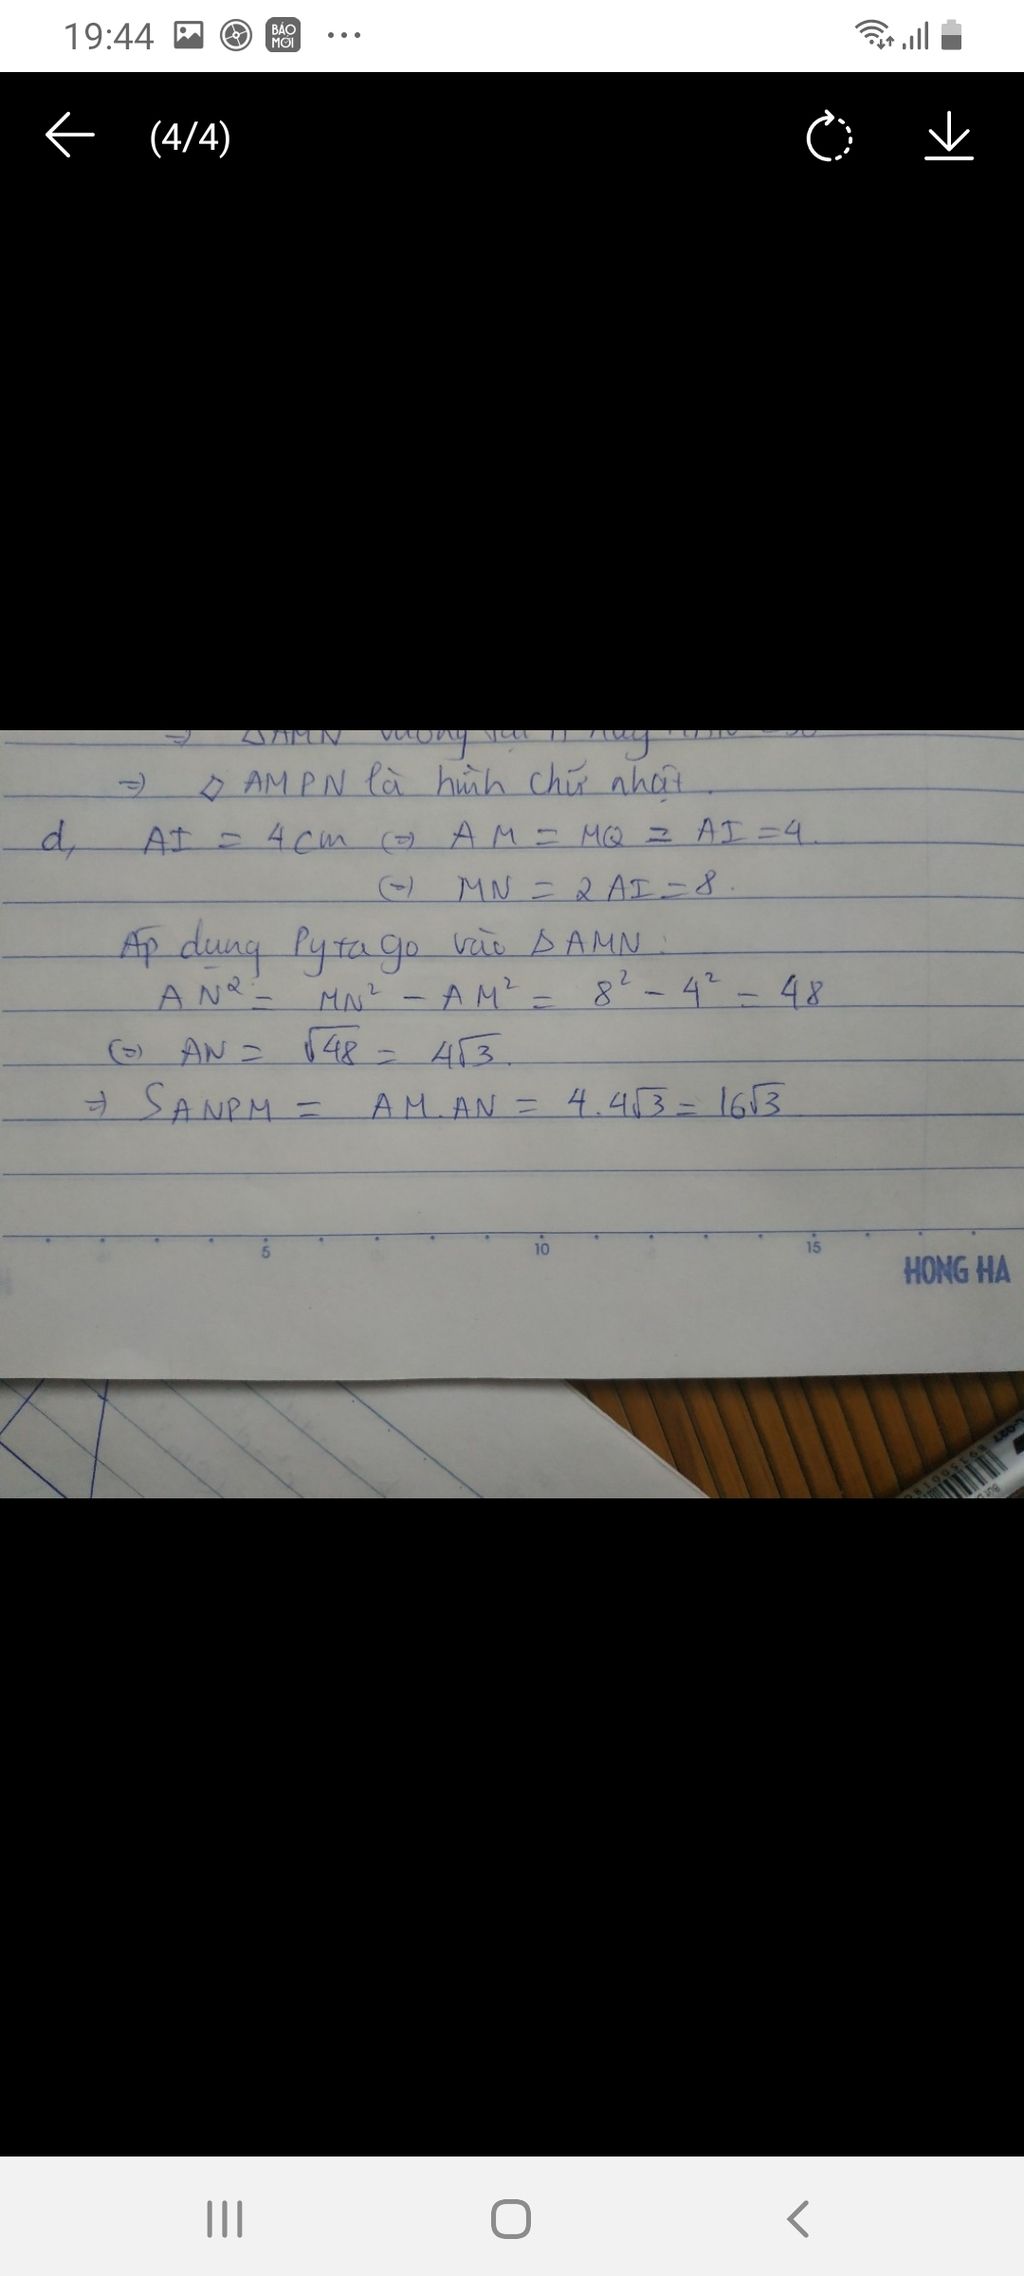 19:44 BÁO MỚI ...
(4/4)
=> ΔAMN vuông tại A hay
=> ◇ AMPN là hình chữ nhật.
d, AI = 4cm (=) AM = MQ = AI = 4.
(=) MN = 2AI = 8.
Áp dụng Pytago vào Δ AMN:
AN² = MN² - AM² = 8² - 4² = 48
(=) AN = √48 = 4√3.
=> SANPM = AM.AN = 4.4√3 = 16√3
5 10 15
HONG HA